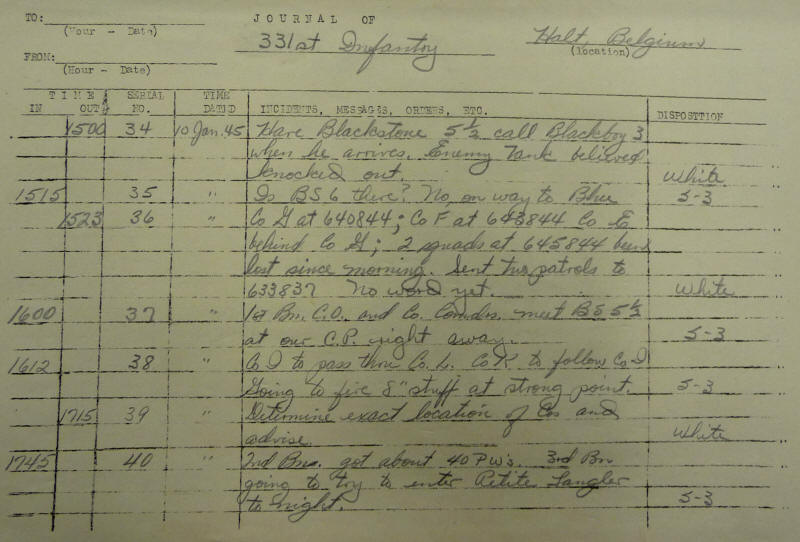 TO:
(Hour - Date)
JOURNAL OF
331st Infantry
Halt, Belgium
(location)
FROM:
(Hour - Date)
TIME
IN OUT
SERIAL NO.
TIME DATED
INCIDENTS, MESSAGES, ORDERS, ETC.
DISPOSITION
1500 34 10 Jan. 45 Have Blackstone 5½ call Blackboy 3
when he arrives. Enemy Tank believed
knocked out. White
1515 35 " Is BS 6 there? No, on way to Blue S-3
1523 36 " Co G at 640844; Co F at 643844 Co E
behind Co G; 2 squads at 645844 been
lost since morning. Sent two patrols to
633837 No word yet. White
1600 37 " 1st Bn. C.O. and Co. Comdrs. meet BS 5½
at our C.P. right away. S-3
1612 38 " Co I to pass thru Co. L. Co K to follow Co I
Going to fire 8" stuff at strong point. S-3
1715 39 " Determine exact location of Cos and
advise. White
1745 40 " 2nd Bn. got about 40 PW's. 3rd Bn
going to try to enter Petite Langler
to night. S-3